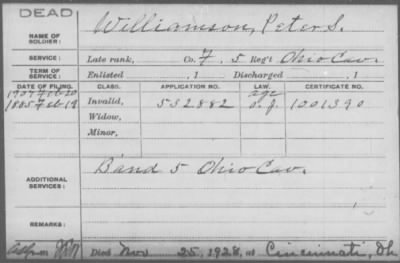 DEAD
NAME OF SOLDIER: Williamson, Peter S.
SERVICE: Late rank, Co. 7, 5 Reg't Ohio Cav.
TERM OF SERVICE: Enlisted , 1 Discharged , 1
DATE OF FILING. CLASS. APPLICATION NO. LAW. CERTIFICATE NO.
1907 Feb 20 age
1885 Feb 19 Invalid, 532882 o.g. 1001390
Widow,
Minor,
ADDITIONAL SERVICES: Band 5 Ohio Cav.
REMARKS:
Died Nov 25, 1928, at Cincinnati, Oh